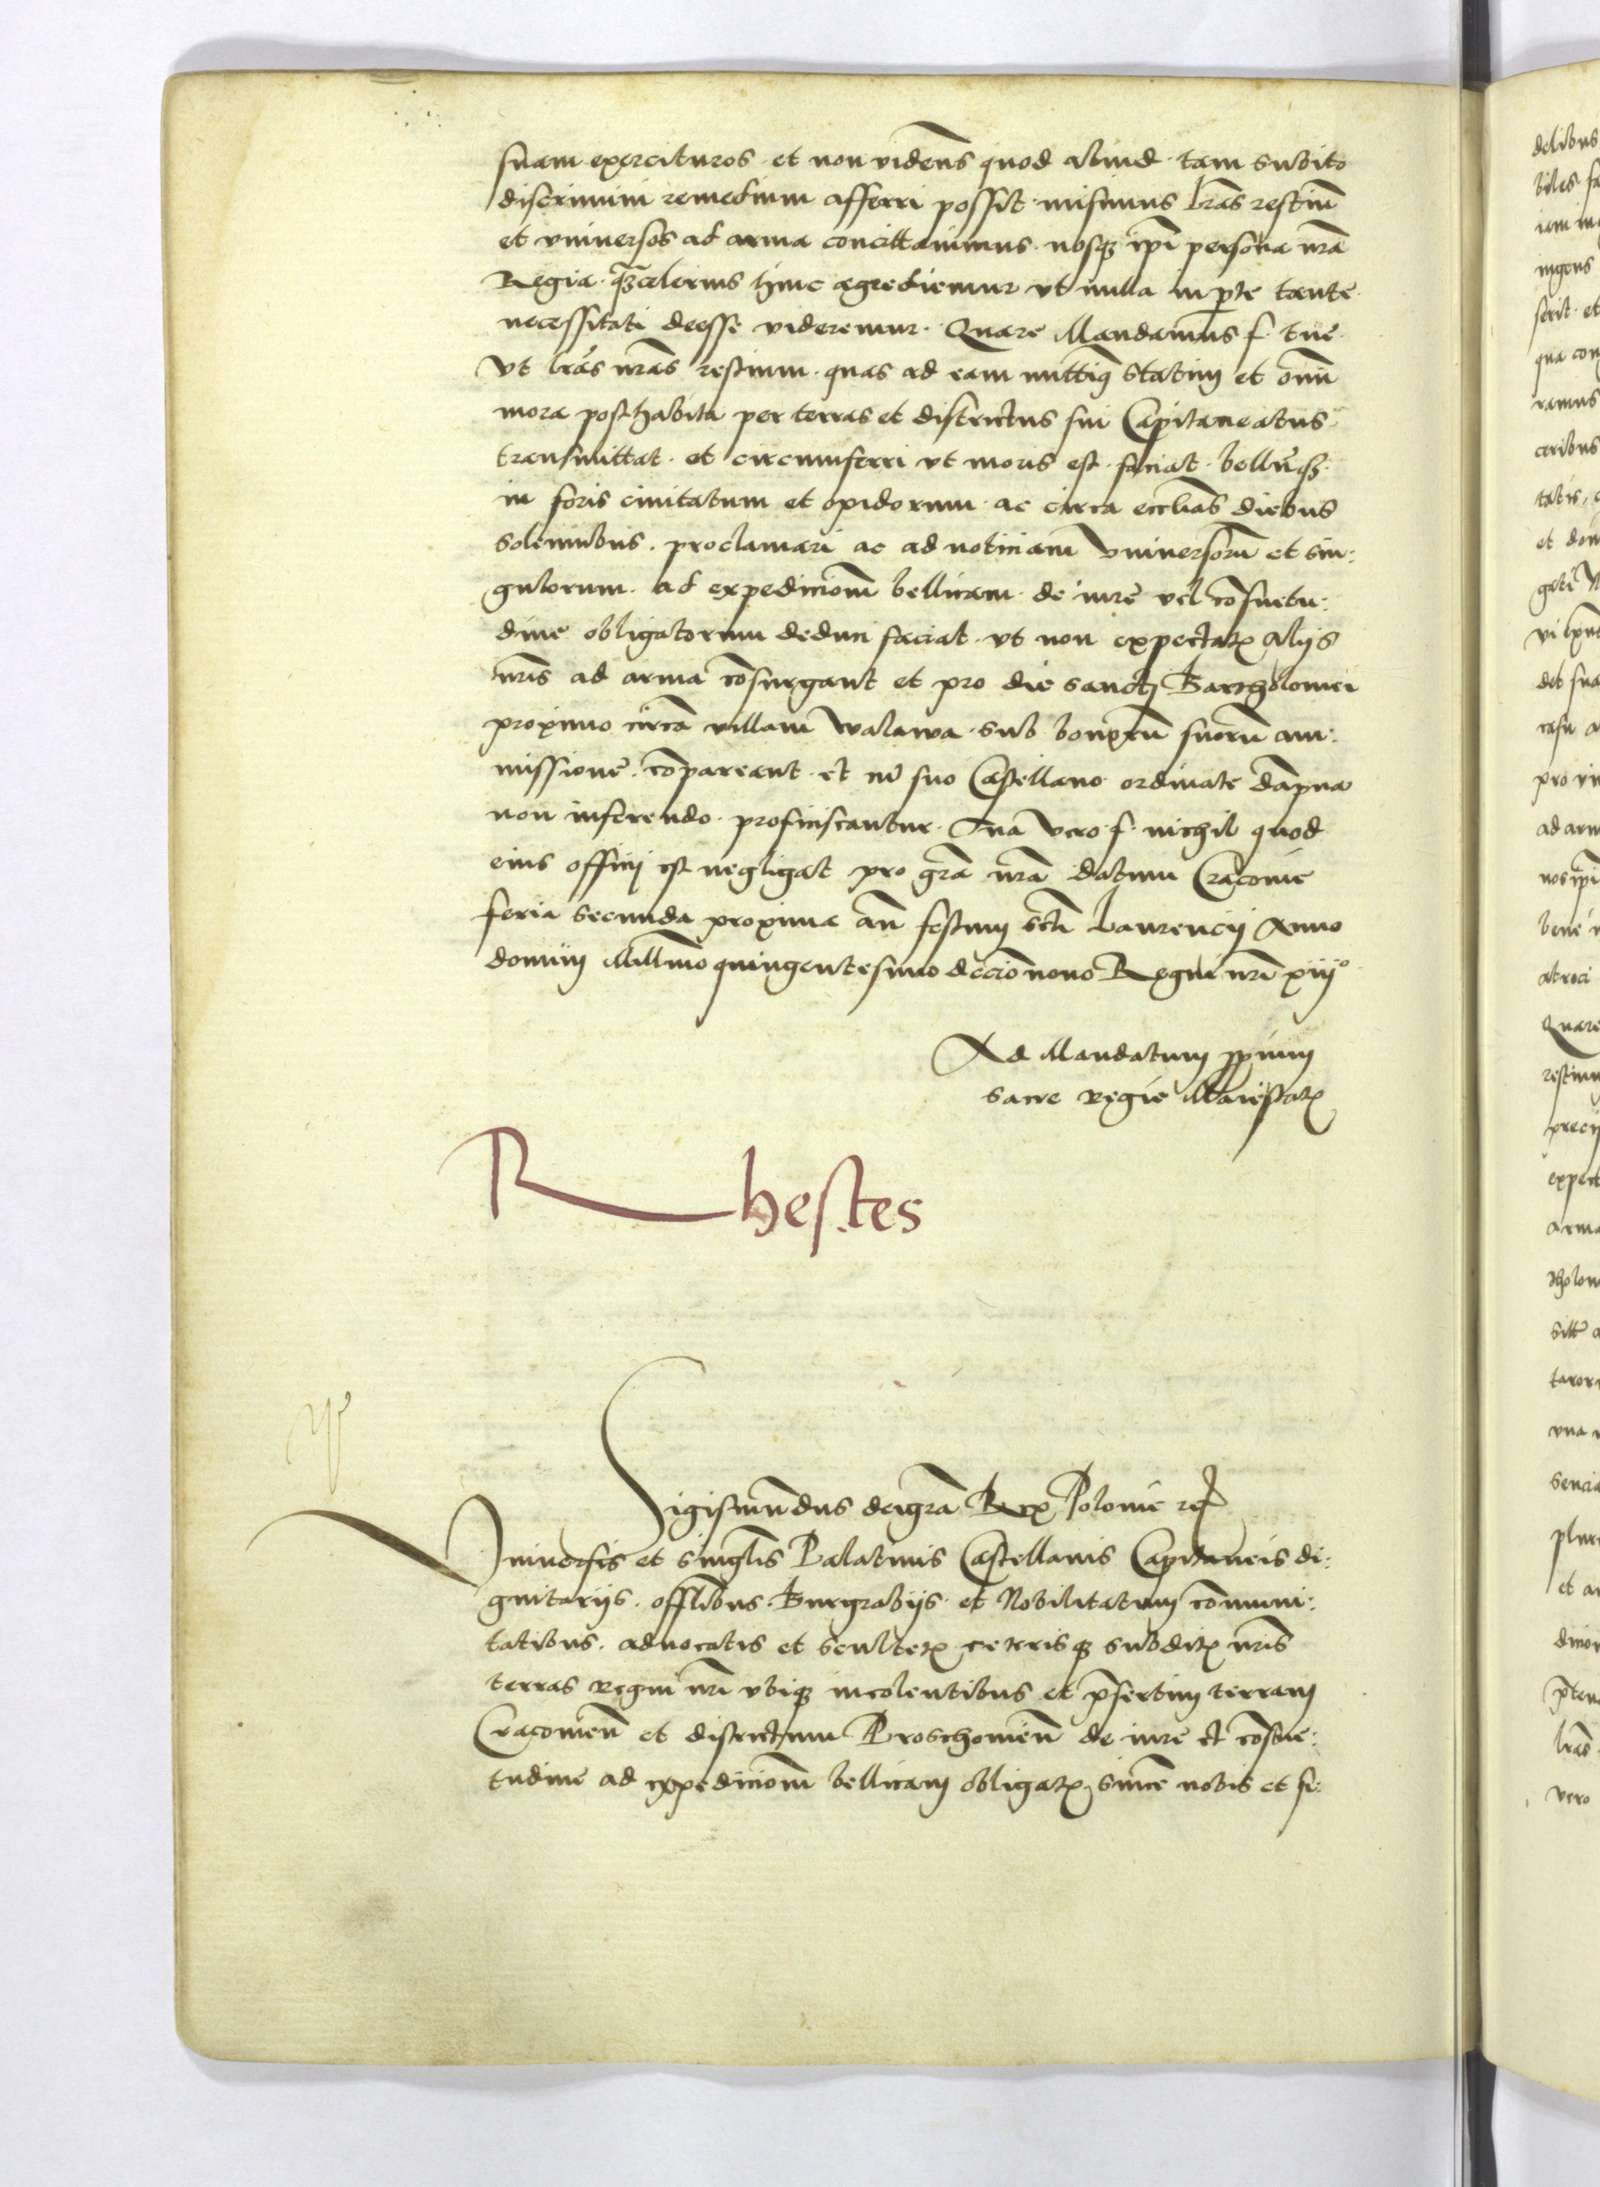 suam exercituros et non videns quod aliud tam subito
discrimini remedium afferri possit misimus lrãs restiũ
et vniversos ad arma concittavimus nosq₃ ipĩ persona nrã
Regia q₃celerius hinc egrediemur vt nulla in pte tante
necessitati deesse videremur. Quare Mandamus f. tue
Vt lrãs nrãs restium quas ad eam mittimus statim et omni
mora posthabita per terras et districtus sui Capitaneatus
transmittat et circumferri vt moris est faciat
in foris civitatum et opidorum ac circa eccliãs diebus
solennibus proclamari ac ad noticiam vniversorũ et sin:
gulorum ad expedicionẽ bellicam de iure vel cõsuetu:
dine obligatorum deduci faciat vt non expectatis Alijs
nrĩs ad arma cõsurgant et pro die sancti Bartholomei
proximo circa villam Walawa sub bonorũ suorũ am:
missione cõpareant et cũ suo Castellano ordinate dãpna
non inferendo proficiscantur. Tua vero f. nichil quod
eius officij est negligat pro grã nrã datum Cracovie
feria secunda proxima añ festum scti Laurencij Anno
domini Millmo quingentesimo decionono Regni nrĩ xiij°
Ad Mandatum ppriũ
sacre Regie Maiestatis
Rhestes
Sigismũdus deigrã Rex Polonie
Vniversis et singlis Palatinis Castellanis Capitaneis di:
gnitarijs offlibus Burgrabijs et Nobilitatum cõmuni:
tatibus advocatis et scultetis ceterisq₃ subditis nrĩs
terras regni nrĩ vbiq₃ incolentibus et psertim terram
Cracovieñ et districtum Proschovieñ de iure et cõsue:
tudine ad expedicionẽ bellicam obligatis sincẽ nobis et fi: